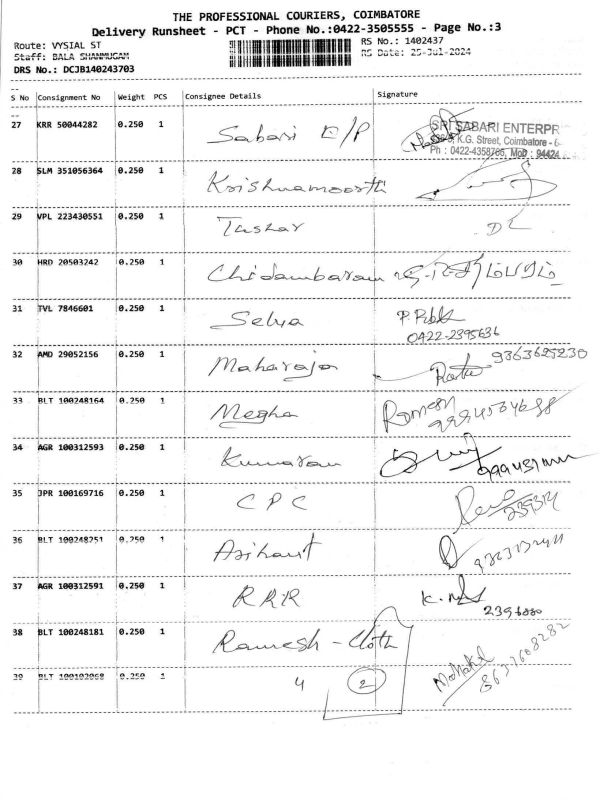 THE PROFESSIONAL COURIERS, COIMBATORE
Delivery Runsheet - PCT - Phone No.:0422-3505555 - Page No.:3
Route: VYSIAL ST RS No.: 1402437
Staff: BALA SHANMUGAM RS Date: 25-Jul-2024
DRS No.: DCJB140243703
S No Consignment No Weight PCS Consignee Details Signature
27 KRR 50044282 0.250 1 Sabari E/P
SRI SABARI ENTERPR
K.G. Street, Coimbatore - 6
Ph : 0422-4358766, Mob : 94424
28 SLM 351056364 0.250 1 Krishnamoorth
29 VPL 223430551 0.250 1 Tushar
30 HRD 20503242 0.250 1 Chidambaram
31 TVL 7846601 0.250 1 Selya
0422-2395636
32 AMD 29052156 0.250 1 Maharaja 9363625230
33 BLT 100248164 0.250 1 Megha Ramesh
34 AGR 100312593 0.250 1 Kumaran
35 JPR 100169716 0.250 1 CPC
36 BLT 100248251 0.250 1 Arihant
37 AGR 100312591 0.250 1 RRR
2396880
38 BLT 100248181 0.250 1 Ramesh - Cloth
39 BLT 100103068 0.250 1 4 2 8637608282